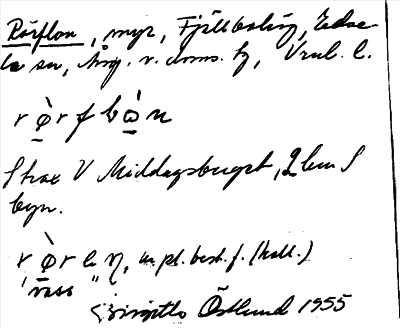 Rörflon, myr, Fjällboläg, Edse-
le sn, Ång. v. doms. tg, Vnl. l.
r ø̀ r f l ɷ̀ n
Strax V Middagsberget, 2 km S
byn.
r ø̀ r e ŋ, m pl. best. f. (koll.)
"vass"
Birgitta Östlund 1955